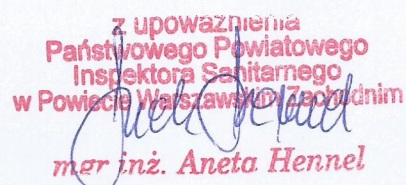 z upoważnienia
Państwowego Powiatowego
Inspektora Sanitarnego
w Powiecie Warszawskim Zachodnim
mgr inż. Aneta Hennel